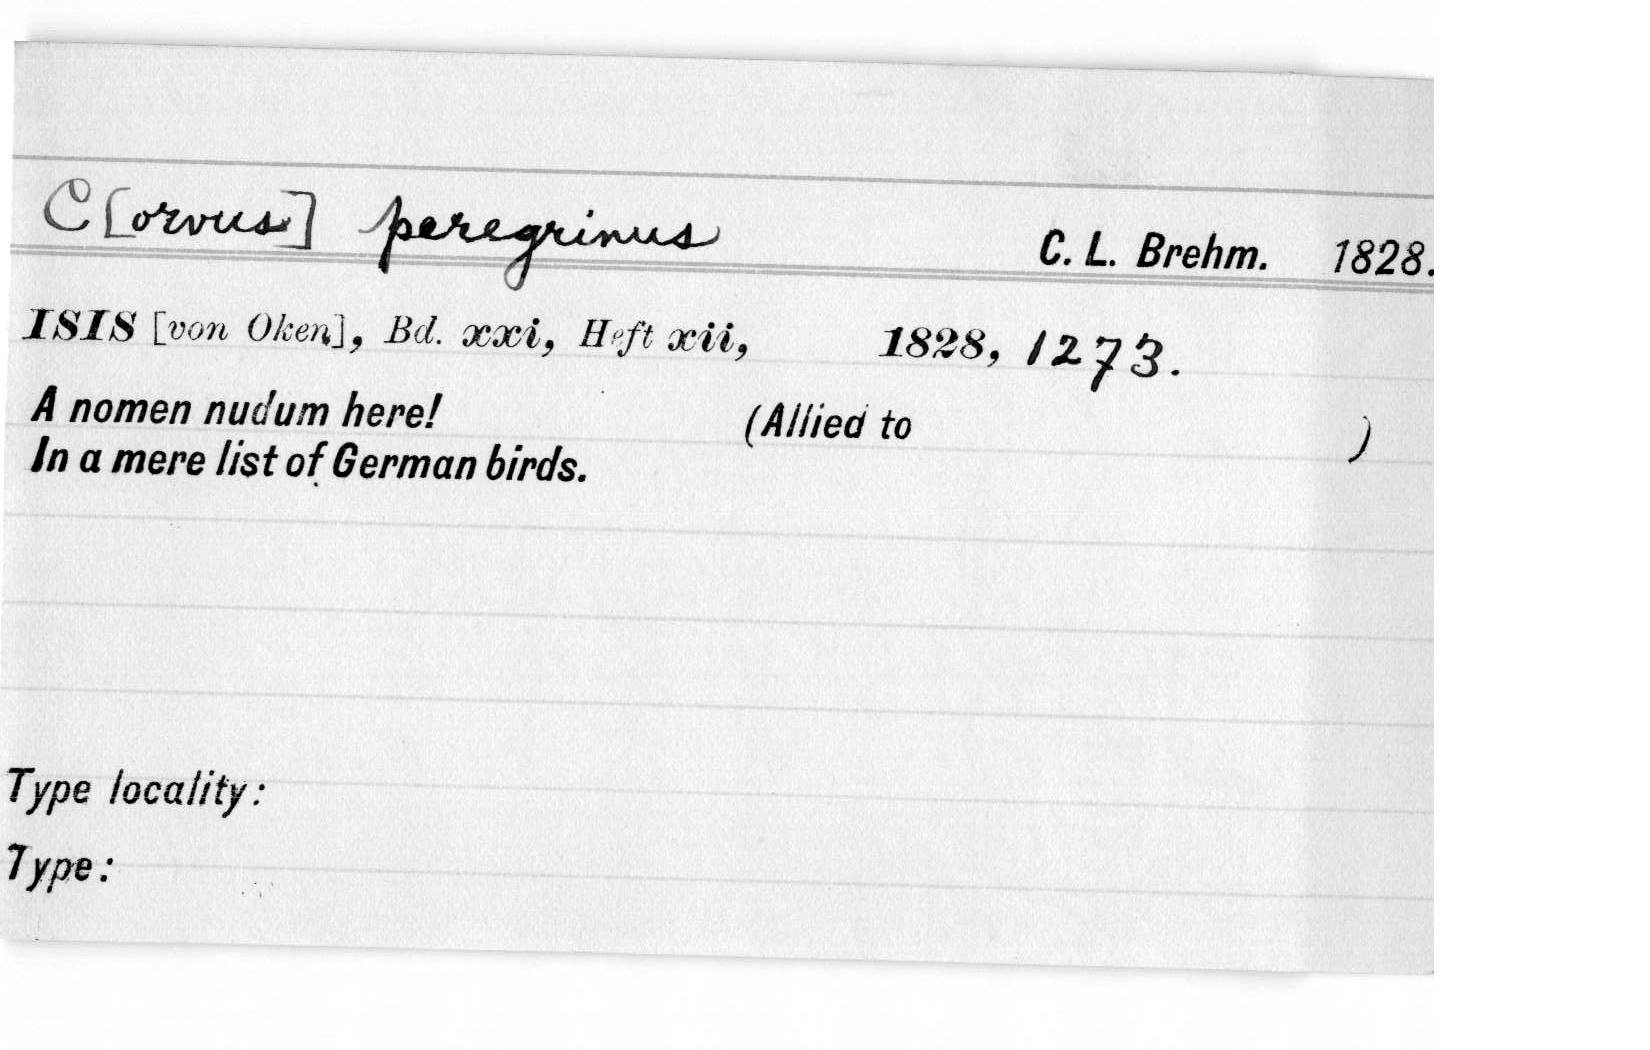 C[orvus] peregrinus C. L. Brehm. 1828.
ISIS [von Oken], Bd. xxi, Heft xii, 1828, 1273.
A nomen nudum here! (Allied to )
In a mere list of German birds.
Type locality:
Type: